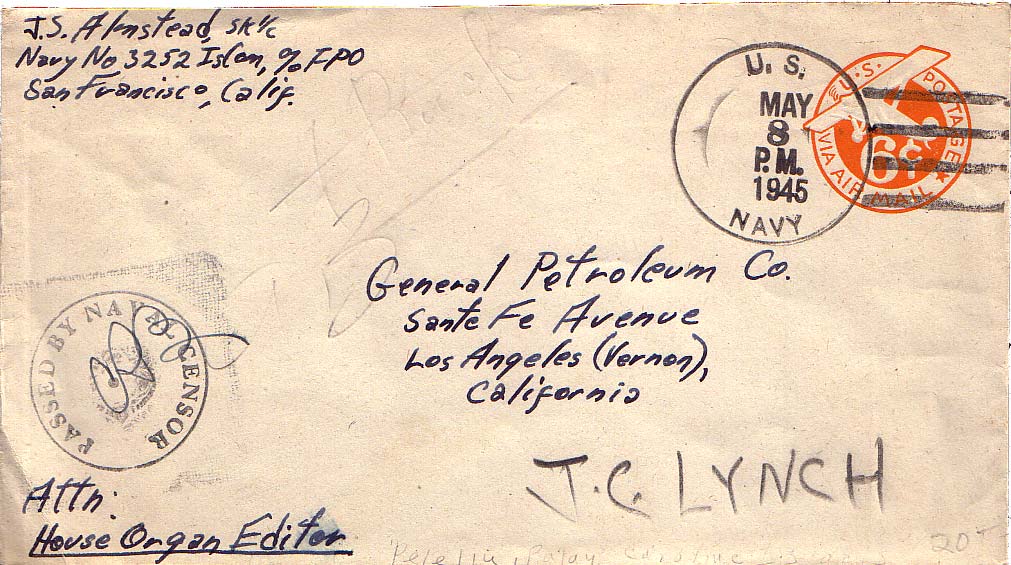 J.S. Almstead, SK1/c
Navy No 3252 Islcom, c/o FPO
San Francisco, Calif.
U.S.
MAY
8
P.M.
1945
NAVY
U.S. POSTAGE
6¢
VIA AIR MAIL
General Petroleum Co.
Sante Fe Avenue
Los Angeles (Vernon),
California
PASSED BY NAVAL CENSOR
J.C. LYNCH
Attn:
House Organ Editor
Peleliu, Palau Caroline
20